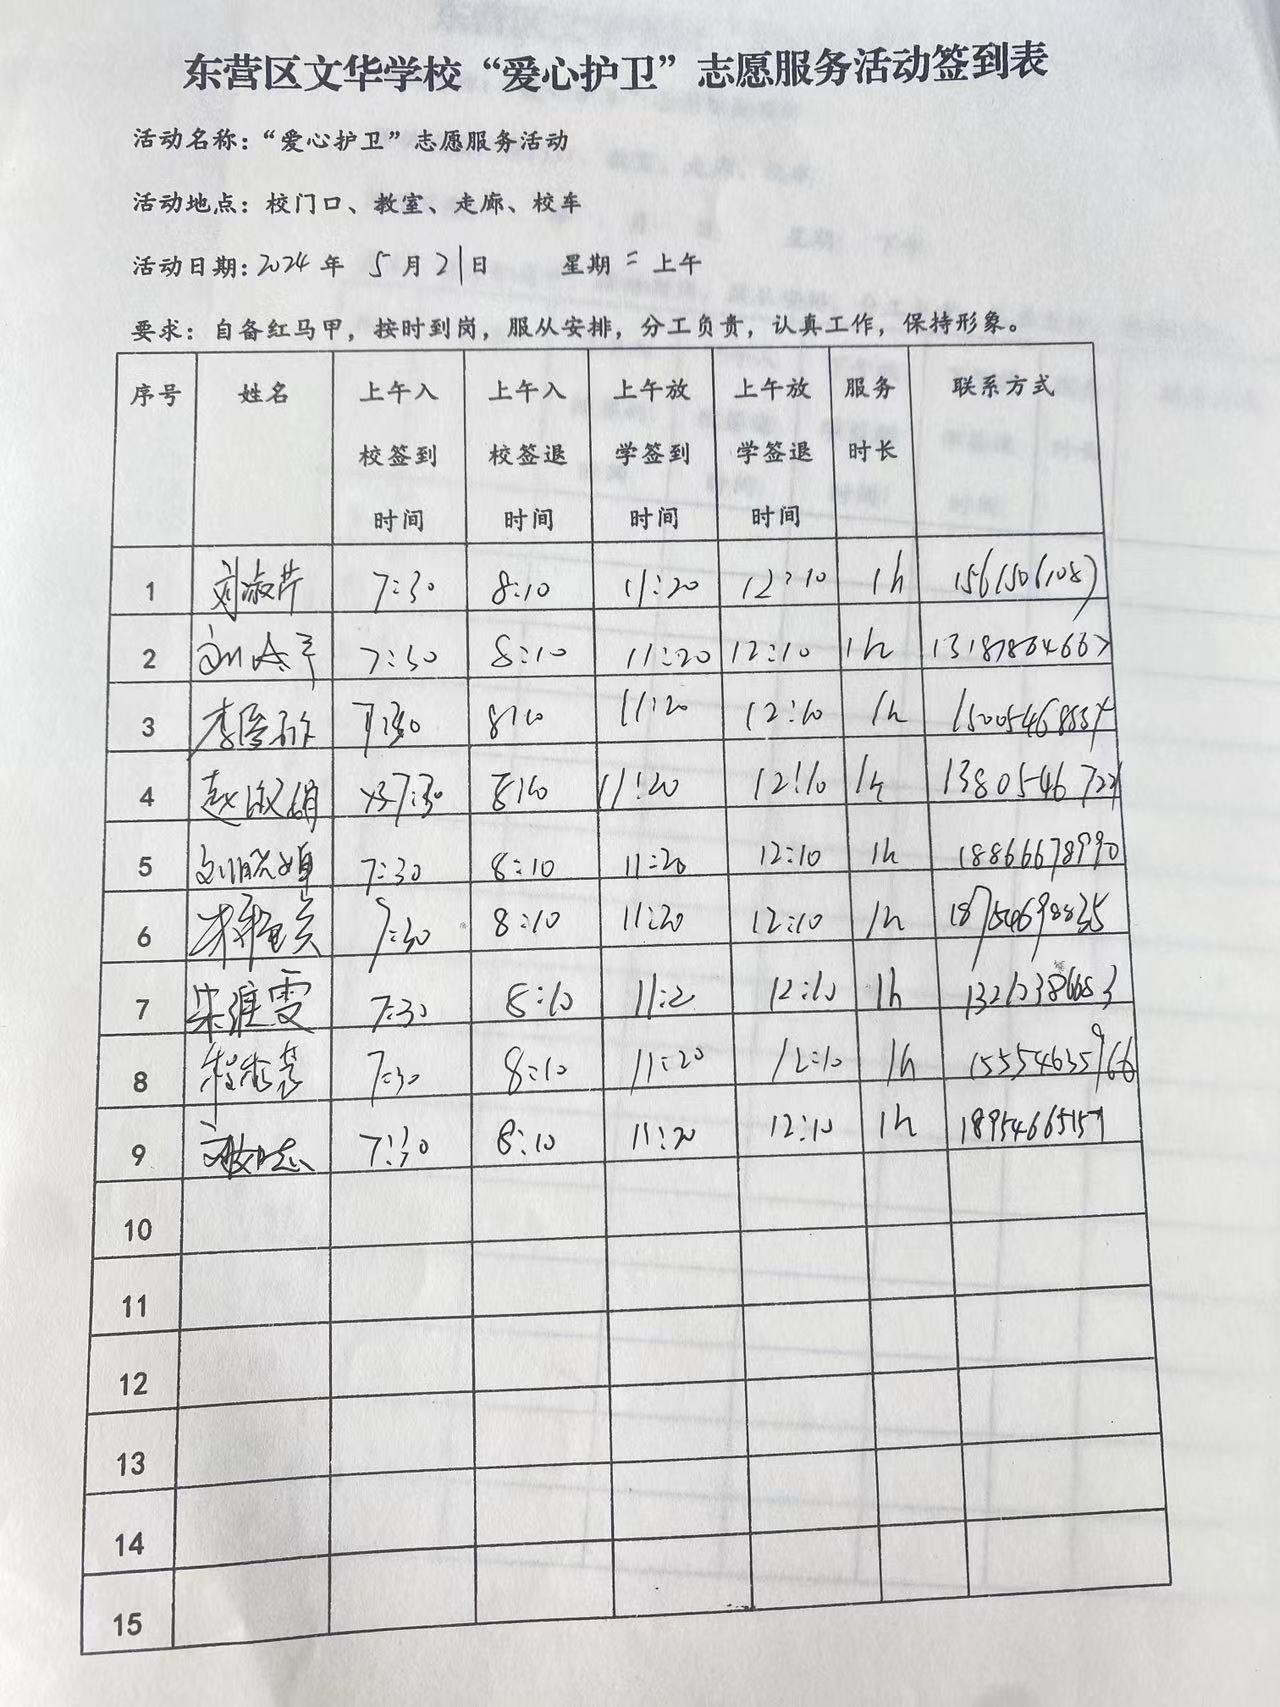 东营区文华学校“爱心护卫”志愿服务活动签到表
活动名称:“爱心护卫”志愿服务活动
活动地点:校门口、教室、走廊、校车
活动日期:2024年 5月21日 星期二上午
要求:自备红马甲,按时到岗,服从安排,分工负责,认真工作,保持形象。
序号 姓名 上午入校签到时间 上午入校签退时间 上午放学签到时间 上午放学签退时间 服务时长 联系方式
1 刘淑芹 7:30 8:10 11:20 12:10 1h 15615061087
2 7:30 8:10 11:20 12:10 1h 13187864667
3 7:30 8:10 11:20 12:10 1h
4 7:30 8:10 11:20 12:10 1h
5 7:30 8:10 11:20 12:10 1h 18866678990
6 7:30 8:10 11:20 12:10 1h 18754698835
7 7:30 8:10 11:2 12:10 1h
8 7:30 8:10 11:20 12:10 1h 15554635966
9 7:30 8:10 11:20 12:10 1h
10
11
12
13
14
15